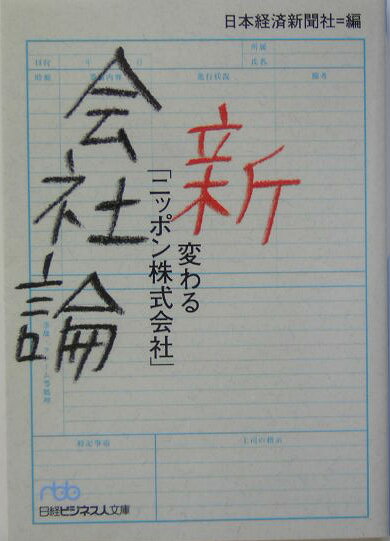 日本経済新聞社=編
所属
氏名
日付 年 月 日
時報 業務内容 進行状況 備考
新
会社論
変わる
「ニッポン株式会社」
特記事項
上司の指示
nbb
日経ビジネス人文庫